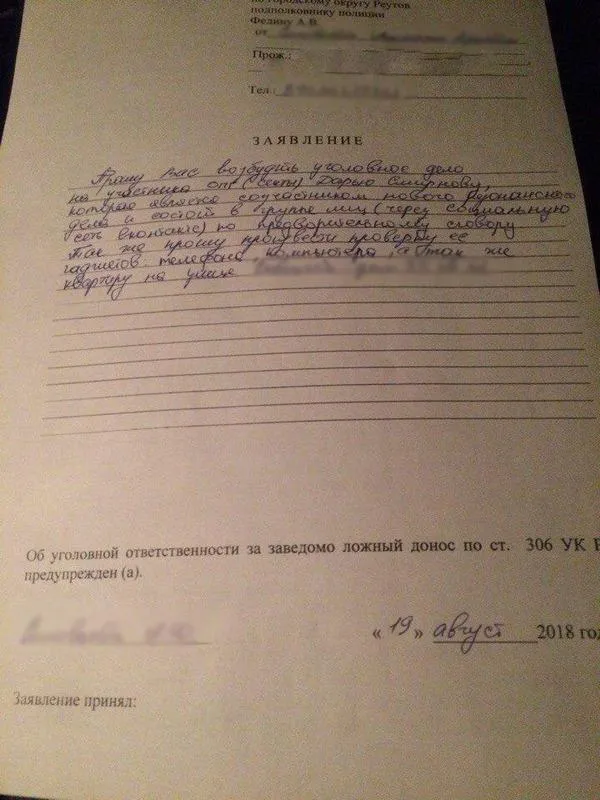 по городскому округу Реутов
подполковнику полиции
Федину А.В.
от
Прож.:
Тел.:
ЗАЯВЛЕНИЕ
Прошу Вас возбудить уголовное дело
на участника опг (секты) Дарью Смирнову,
которая является соучастником нового резонансного
дела и состоит в группе лиц (через социальную
сеть вконтакте) по предворительному сговору
Так же прошу произвести проверку ее
гаджетов: телефона компьютера, а так же
квартиру на улице
Об уголовной ответственности за заведомо ложный донос по ст. 306 УК
предупрежден (а).
« 19 » август 2018 год
Заявление принял: